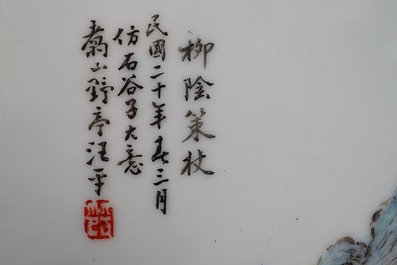 柳陰策杖
民國二十年春三月
仿石谷子大意
山野亭汪平